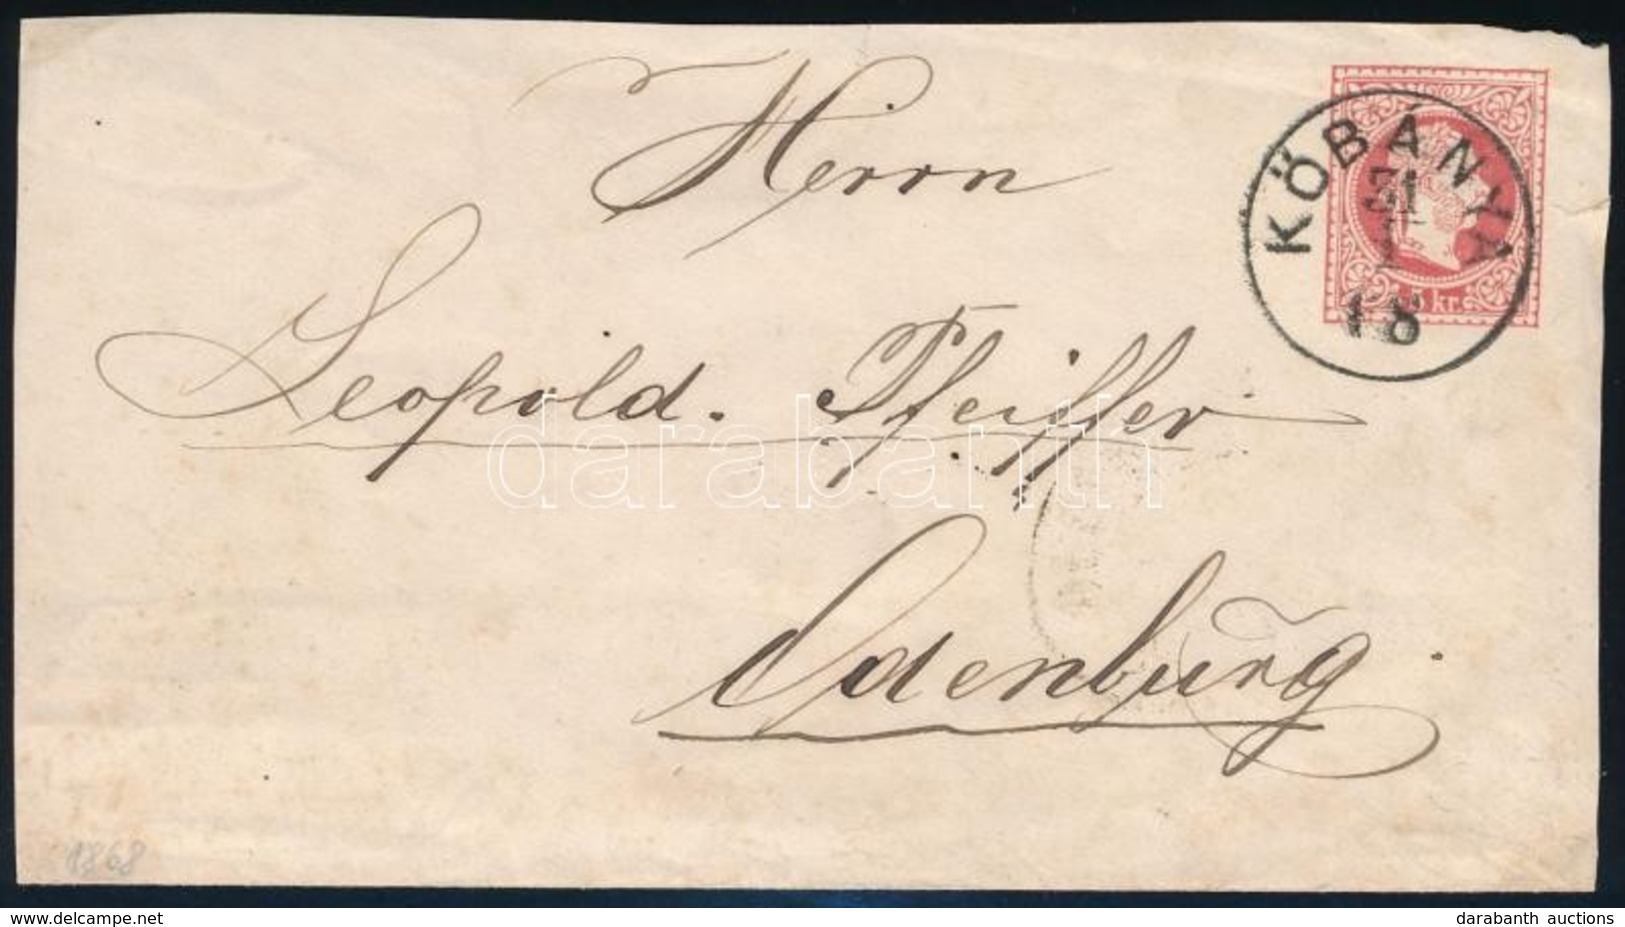 Herrn
KÖBÁNYA
31
1
5 kr.
Leopold. Pfeiffer
darabanth
Odenburg
1868
delcampe.net
darabanth auctions